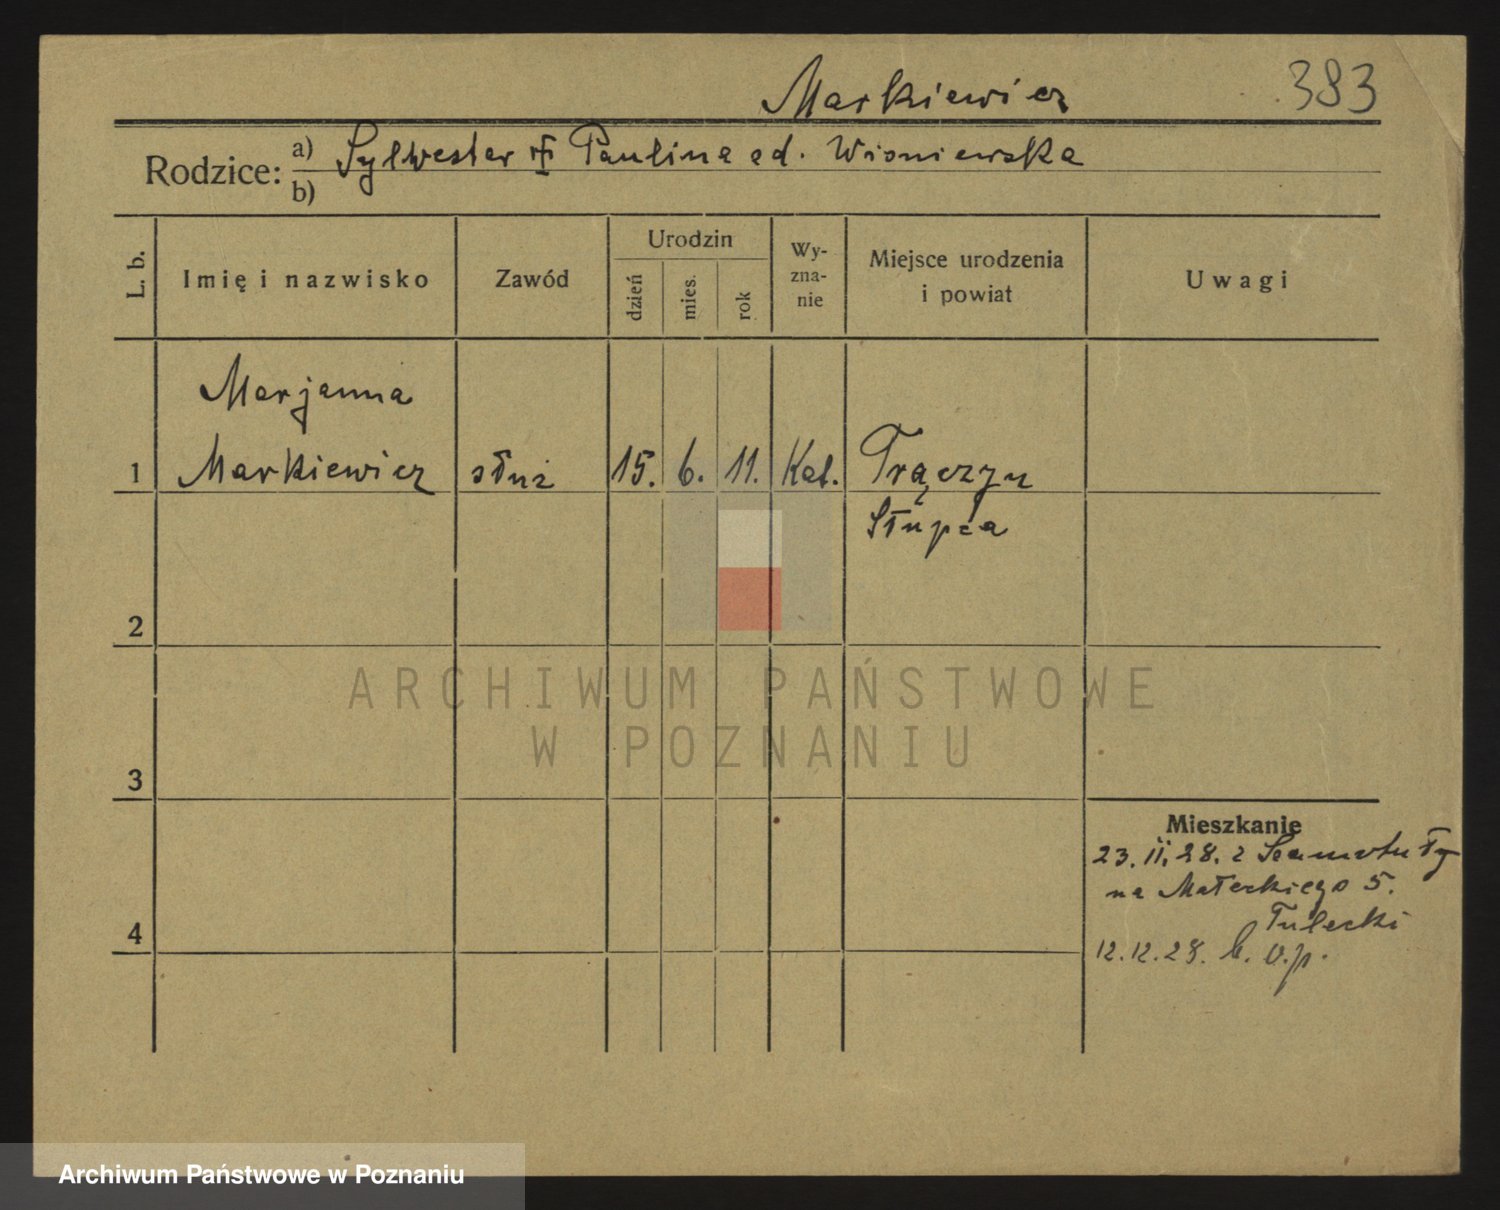 Markiewicz
383
Rodzice: a) Sylwester i Paulina ad. Wisniewska
b)
L. b.
Imię i nazwisko
Zawód
Urodzin
dzień
mies.
rok
Wy-
zna-
nie
Miejsce urodzenia
i powiat
Uwagi
Marjanna
1 Markiewicz służ 15. 6. 11. Kat. Trączyn
Słupca
2
ARCHIWUM PAŃSTWOWE
W POZNANIU
3
Mieszkanie
23. II. 28. z Szamotuły
na Małeckiego 5.
Tulecki
4
12.12.28. b. o.p.
Archiwum Państwowe w Poznaniu